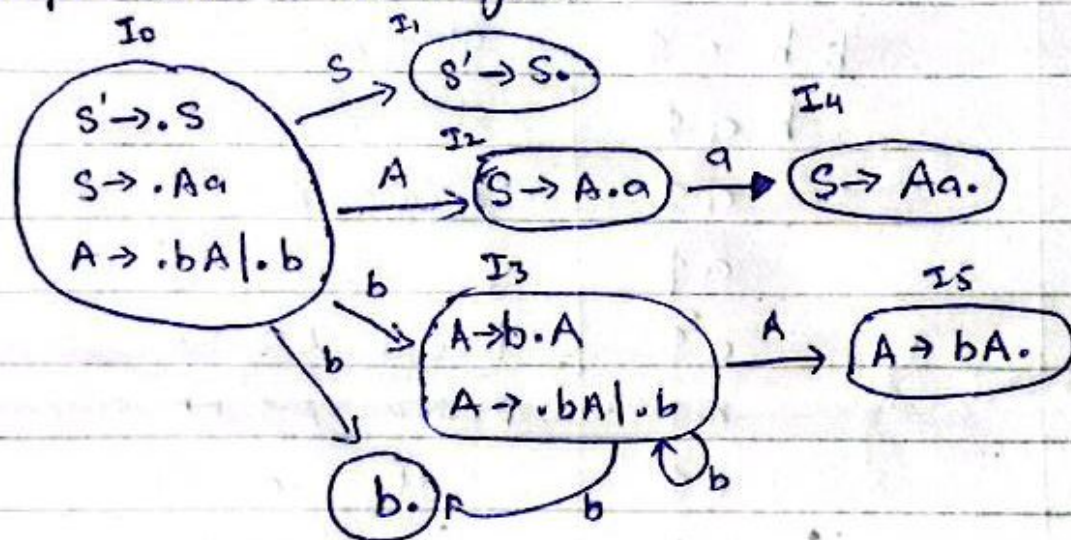 I0
S' → .S
S → .Aa
A → .bA|.b
S
I1
S' → S.
A
I2
S → A.a
a
I4
S → Aa.
b
I3
A → b.A
A → .bA|.b
A
I5
A → bA.
b
b.
b
b